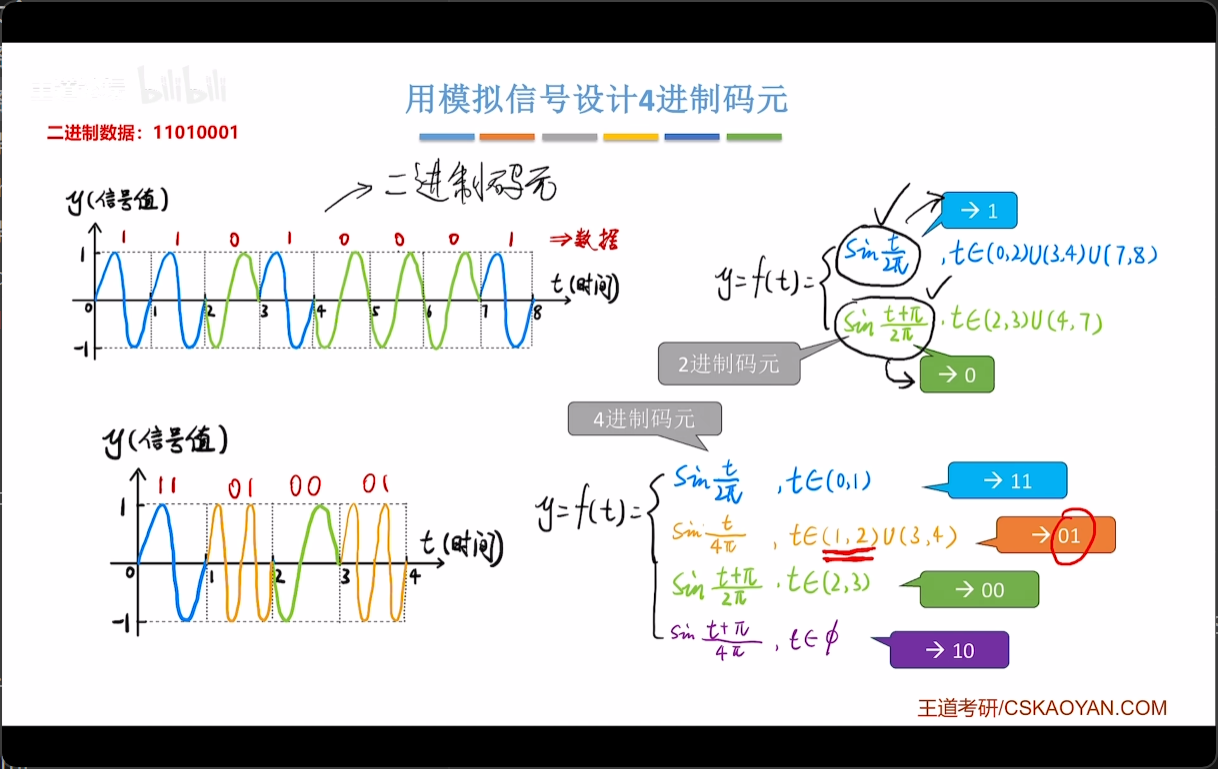 bilibili
用模拟信号设计4进制码元
二进制数据：11010001
二进制码元
y(信号值)
1 1 0 1 0 0 0 1 ⇒数据
1
t(时间)
0 1 2 3 4 5 6 7 8
-1
y=f(t)=
sin t/2π ，t∈(0,2)∪(3,4)∪(7,8)
→ 1
sin t+π/2π ，t∈(2,3)∪(4,7)
→ 0
2进制码元
4进制码元
y(信号值)
11 01 00 01
1
t(时间)
0 1 2 3 4
-1
y=f(t)=
sin t/2π ，t∈(0,1)
→ 11
sin t/4π ，t∈(1,2)∪(3,4)
→ 01
sin t+π/2π ，t∈(2,3)
→ 00
sin t+π/4π ，t∈ϕ
→ 10
王道考研/CSKAOYAN.COM